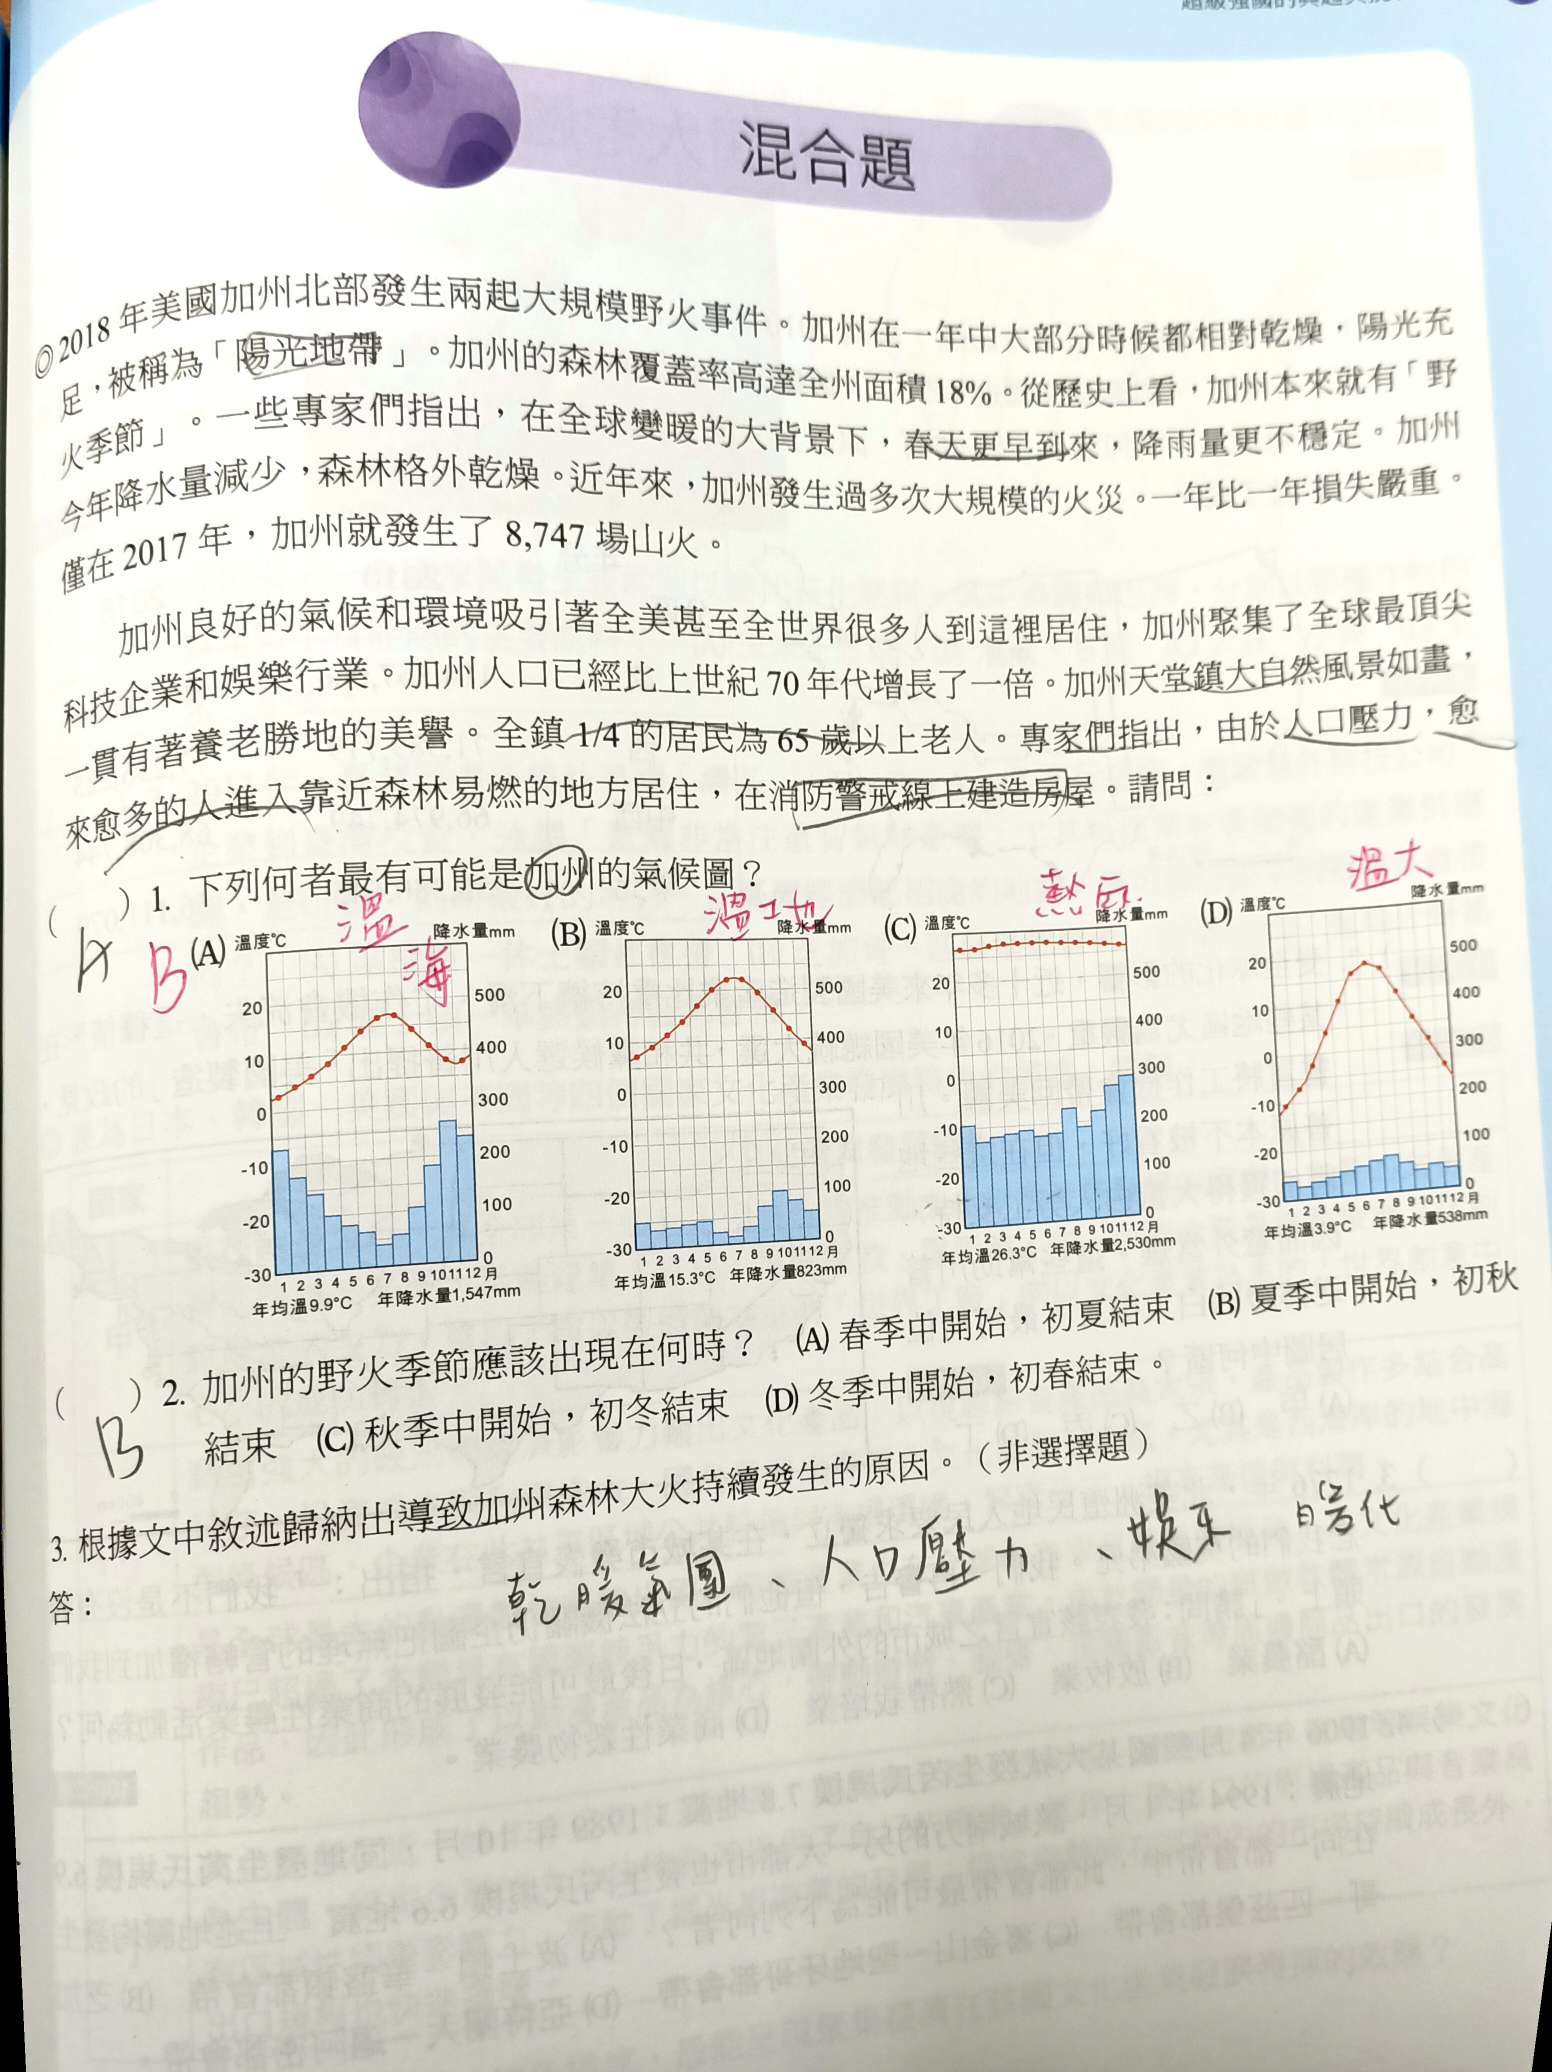 混合題
◎2018 年美國加州北部發生兩起大規模野火事件。加州在一年中大部分時候都相對乾燥，陽光充
足，被稱為「陽光地帶」。加州的森林覆蓋率高達全州面積 18%。從歷史上看，加州本來就有「野
火季節」。一些專家們指出，在全球變暖的大背景下，春天更早到來，降雨量更不穩定。加州
今年降水量減少，森林格外乾燥。近年來，加州發生過多次大規模的火災。一年比一年損失嚴重。
僅在 2017 年，加州就發生了 8,747 場山火。
加州良好的氣候和環境吸引著全美甚至全世界很多人到這裡居住，加州聚集了全球最頂尖
科技企業和娛樂行業。加州人口已經比上世紀 70 年代增長了一倍。加州天堂鎮大自然風景如畫，
一貫有著養老勝地的美譽。全鎮 1/4 的居民為 65 歲以上老人。專家們指出，由於人口壓力，愈
來愈多的人進入靠近森林易燃的地方居住，在消防警戒線上建造房屋。請問：
（　　）1. 下列何者最有可能是加州的氣候圖？
A B
(A) 溫度℃ 溫海 降水量mm
20 10 0 -10 -20 -30
500 400 300 200 100 0
1 2 3 4 5 6 7 8 9 10 11 12 月
年均溫9.9°C 年降水量1,547mm
(B) 溫度℃ 溫地 降水量mm
20 10 0 -10 -20 -30
500 400 300 200 100 0
1 2 3 4 5 6 7 8 9 10 11 12 月
年均溫15.3°C 年降水量823mm
(C) 溫度℃ 熱 降水量mm
20 10 0 -10 -20 -30
500 400 300 200 100 0
1 2 3 4 5 6 7 8 9 10 11 12 月
年均溫26.3°C 年降水量2,530mm
(D) 溫度℃ 溫大 降水量mm
20 10 0 -10 -20 -30
500 400 300 200 100 0
1 2 3 4 5 6 7 8 9 10 11 12 月
年均溫3.9°C 年降水量538mm
（　　）2. 加州的野火季節應該出現在何時？ (A) 春季中開始，初夏結束 (B) 夏季中開始，初秋
B
結束 (C) 秋季中開始，初冬結束 (D) 冬季中開始，初春結束。
3. 根據文中敘述歸納出導致加州森林大火持續發生的原因。（非選擇題）
答：
乾暖氣團、人口壓力、娛樂